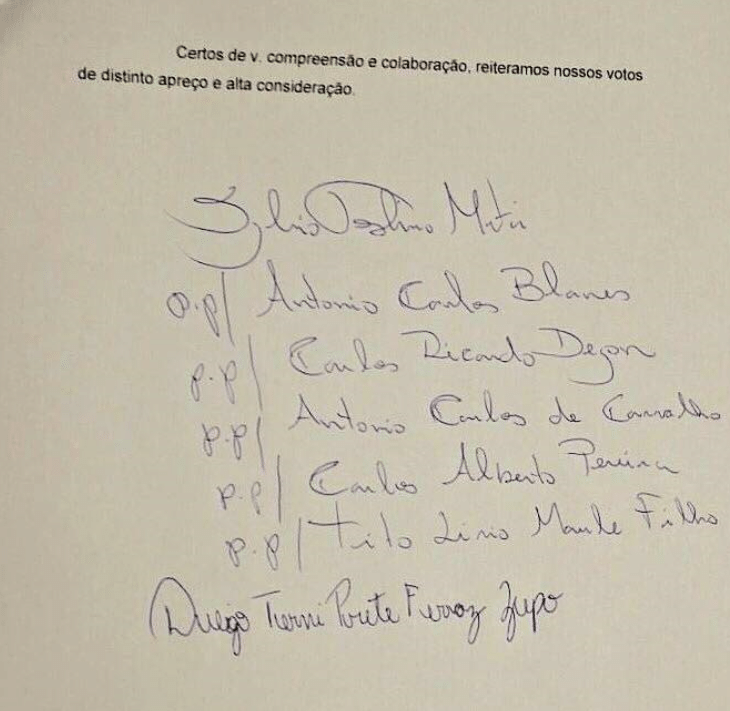 Certos de v. compreensão e colaboração, reiteramos nossos votos
de distinto apreço e alta consideração.
p.p/ Antonio Carlos Blanes
p.p/ Carlos Ricardo
p.p/ Antonio Carlos de Carvalho
p.p/ Carlos Alberto Pereira
p.p/ Tito Livio Filho
Diego Ferraz Zupo